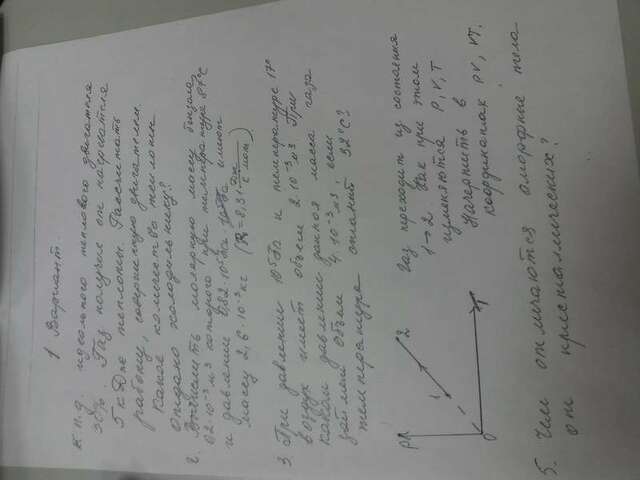 1 Вариант.
К.п.д. идеального теплового двигателя
30%. Газ получил от нагревателя
5 кДж теплоты. Рассчитать
работу, совершённую двигателем.
Какое количество теплоты
отдано холодильнику?
2. Вычислить молярную массу
02·10⁻³ м3 которого при температуре
и давлении имеют
массу 2,6·10⁻³ кг (R=8,31
3 При давлении 10⁵ Па и температуре 17°
воздух имеет объем 2·10⁻³ м3 При
каком давлении данная масса газа
займет объем 4·10⁻³ м3 если
температура станет 52°C?
P
1
2
0
T
Газ переходит из состояния
1→2. Как при этом
изменяются P, V, T
Начертить в
координатах PV, VT.
5. Чем отличаются аморфные тела
от кристаллических?